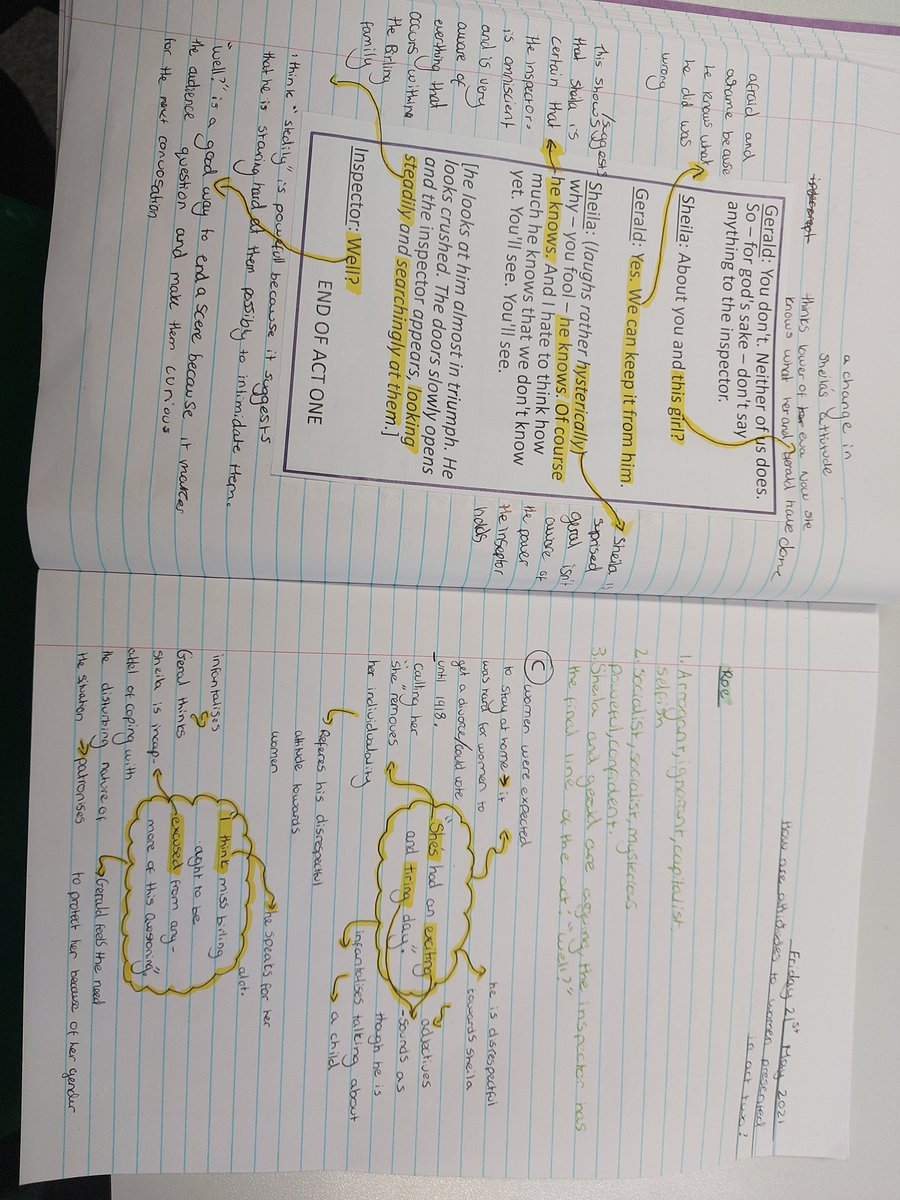 a change in
Sheila's attitude
thinks lower of eva Now she
knows what her and Gerald have done
Gerald: You don't. Neither of us does.
So – for god's sake – don't say
anything to the inspector.
Sheila: About you and this girl?
Gerald: Yes. We can keep it from him.
Sheila: (laughs rather hysterically)
why – you fool – he knows. Of course
he knows. And I hate to think how
much he knows that we don't know
yet. You'll see. You'll see.
[he looks at him almost in triumph. He
looks crushed. The doors slowly opens
and the inspector appears, looking
steadily and searchingly at them.]
Inspector: Well?
END OF ACT ONE
afraid and
ashame because
he knows what
he did was
wrong
This shows/suggests
that Sheila is
certain that
the inspector
is omniscient
and is very
aware of
everthing that
occurs within
the Birling
family
Sheila is
suprised
geral isn't
aware of
the power
the inspetor
holds
I think "stedily" is powerfull because it suggests
that he is staring hard at them possibly to intimidate them.
"well?" is a good way to end a scene because it makes
the audience question and make them curious
for the next convosation
Friday 21st May 2021
How are attitudes to women presented
in act two?
Roe
1. Arrogant, ignorant, capitalist,
selfish
2. socialist, socialist, mysterious
powerful, confident.
3. Sheila and gerald are arguing, the inspector has
the final line of the act: "well?"
C women were expected
to stay at home → it
was hard for women to
get a divorce/could vote
until 1918.
calling her
"she" removes
her individuality
"She's had an exciting
and tiring day."
he is disrespectful
towards sheila
adjectives
- sounds as
though he is
talking about
a child
infantalises
Referes his disrespectful
attitude towards
women
I think miss birling
ought to be
excused from any-
more of this questioning"
he speaks for her
alot.
infantalises
Geral thinks
Sheila is incap-
abel of coping with
the disturbing nature of
the situation → patronises
Gerald feels the need
to protect her because of her gender